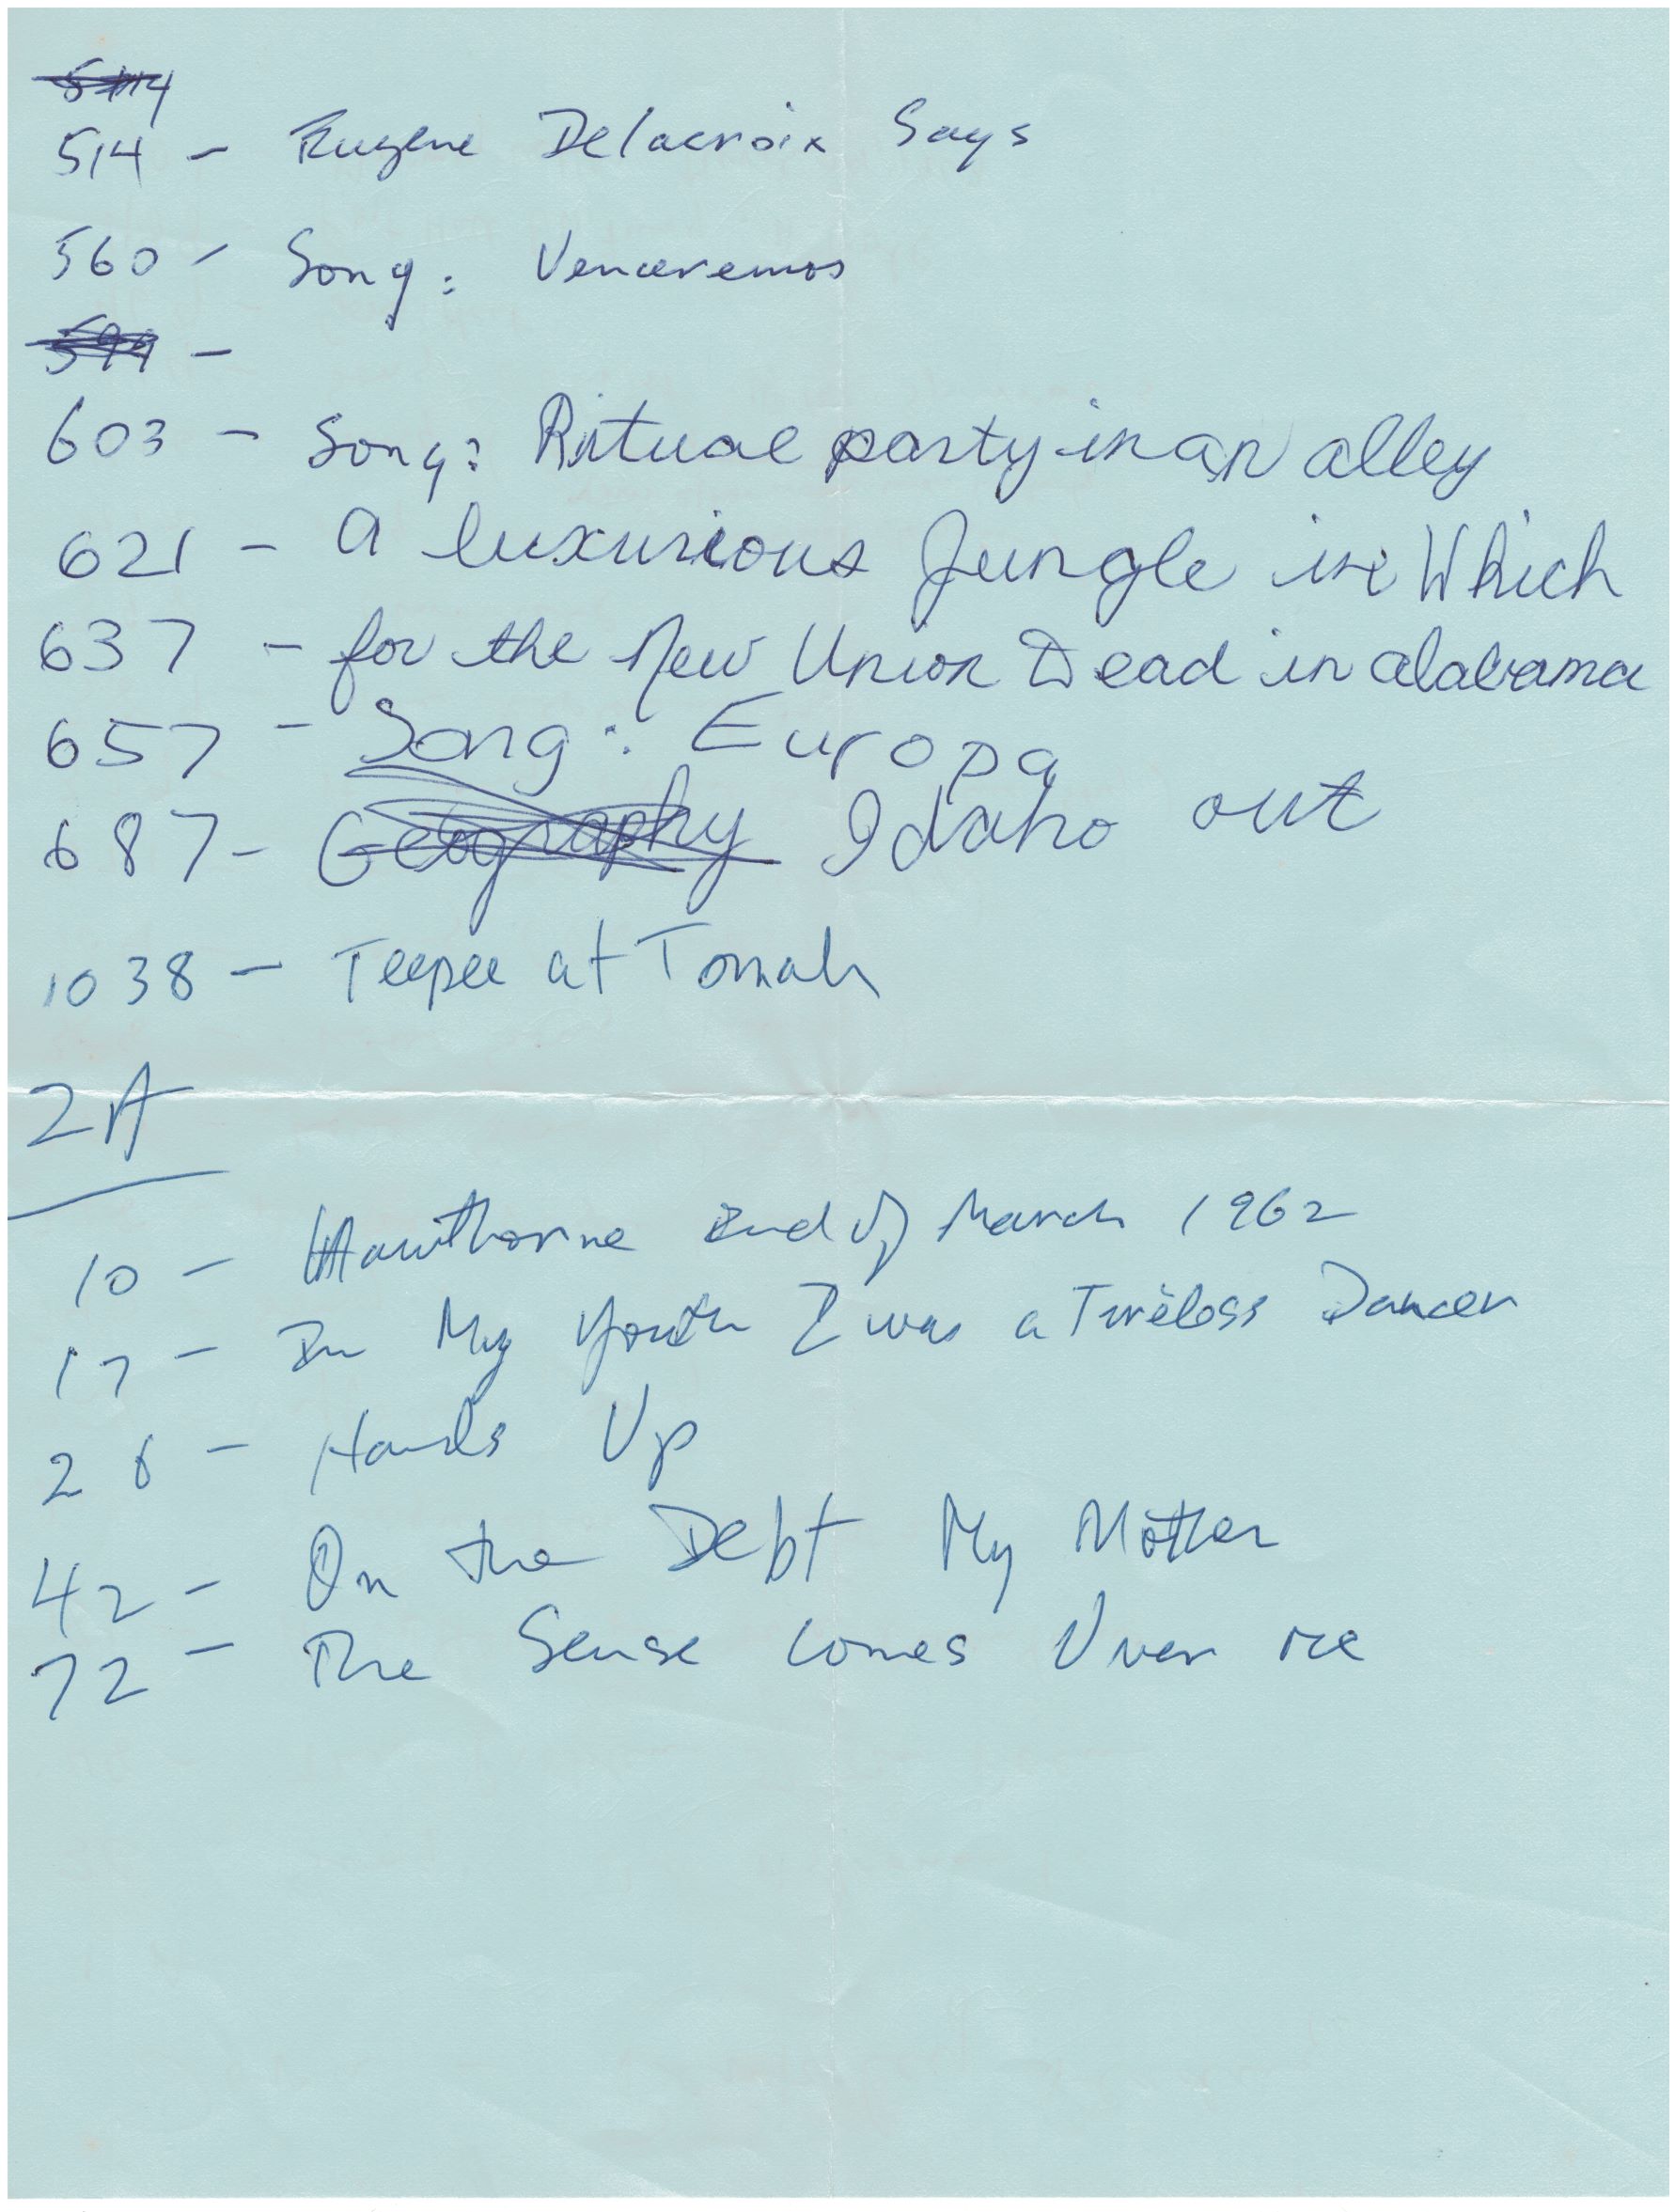 514 - Eugene Delacroix Says
560 - Song: Venceremos
599 -
603 - Song: Ritual party in an alley
621 - A luxurious Jungle in Which
637 - for the New Union Dead in alabama
657 - Song: Europa
687 - Geography Idaho out
1038 - Teepee at Tomah
2A
10 - Hawthorne End Of March 1962
17 - In My Youth I was a Tireless Dancer
26 - Hands Up
42 - On the Debt My Mother
72 - The Sense Comes Over me